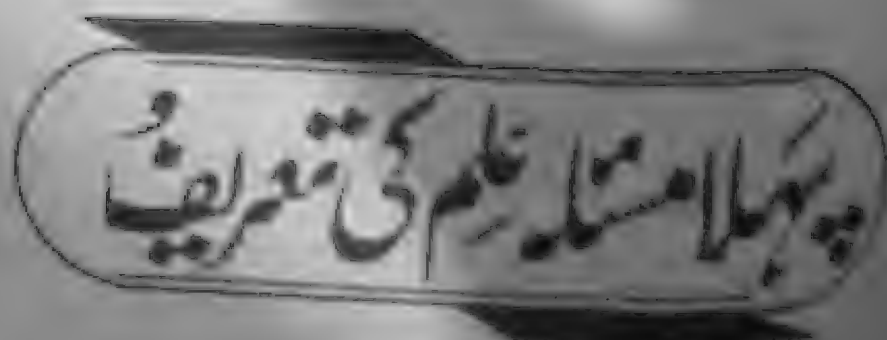 پہلا مسئلہ علم کی تعریف